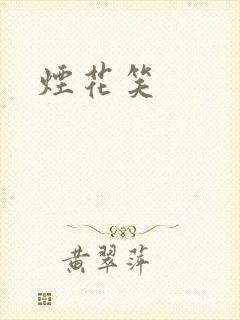 煙花笑
黃翠萍